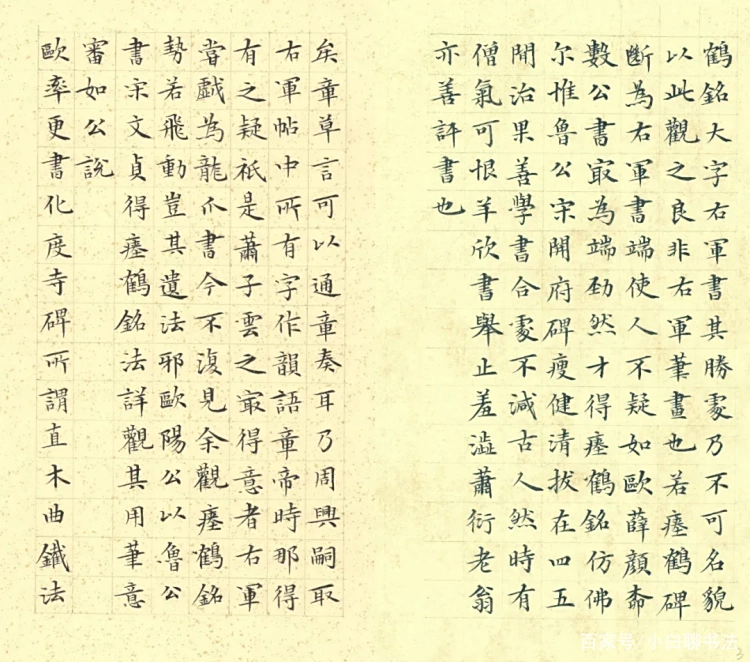 鶴銘大字右軍書其勝處乃不可名貌
以此觀之良非右軍筆畫也若瘞鶴碑
斷為右軍書端使人不疑如歐薛顏
數公書冣為端勁然才得瘞鶴銘仿佛
尔惟魯公宋開府碑瘦健清拔在四五
閒治果善學書合處不減古人然時有
僧氣可恨羊欣書舉止羞澁蕭衍老翁
亦善評書也
矣章草言可以通章奏耳乃周興嗣取
右軍帖中所有字作韻語章帝時那得
有之疑祇是蕭子雲之冣得意者右軍
嘗戲為龍爪書今不復見余觀瘞鶴銘
勢若飛動豈其遺法邪歐陽公以魯公
書宋文貞得瘞鶴銘法詳觀其用筆意
審如公說
歐率更書化度寺碑所謂直木曲鐵法
百家号/小白书法